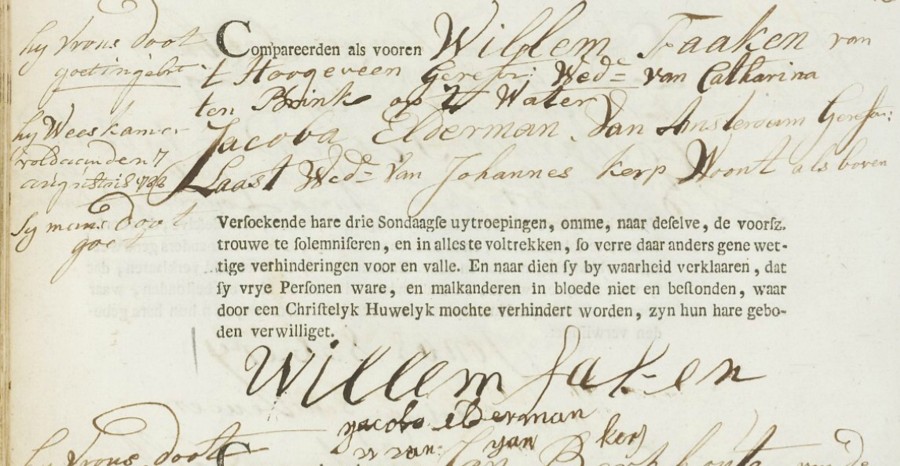 hy vrous doot
goetingebr:
hy Weeskamer
voldaan den 7
augustus 1788
sy mans doot
goet
Compareerden als vooren Willem Faaken van
't Hoogeveen Geref: Wede van Catharina
ten Brink op 't Water
Jacoba Elderman van Amsterdam Geref:
Laast Wede van Johannes Kerp Woont als boven
Versoekende hare drie Sondaagse uytroepingen, omme, naar deselve, de voorsz.
trouwe te solemniseren, en in alles te voltrekken, so verre daar anders gene wet-
tige verhinderingen voor en valle. En naar dien sy by waarheid verklaaren, dat
sy vrye Personen ware, en malkanderen in bloede niet en bestonden, waar
door een Christelyk Huwelyk mochte verhindert worden, zyn hun hare gebo-
den verwilliget.
Willem faken
jacoba elderman
hy vrous doot